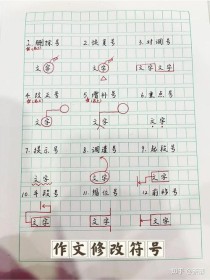 1.删除号 2.恢复号 3.对调号
文字 文字 文字文字
4.改正号 5.增补号 6.重点号
文字 文字 文字
7.提示号 8.调遣号 9.起段号
文字 文字 文字
10.并段号 11.缩位号 12.前移号
文字 文字 文字
作文修改符号